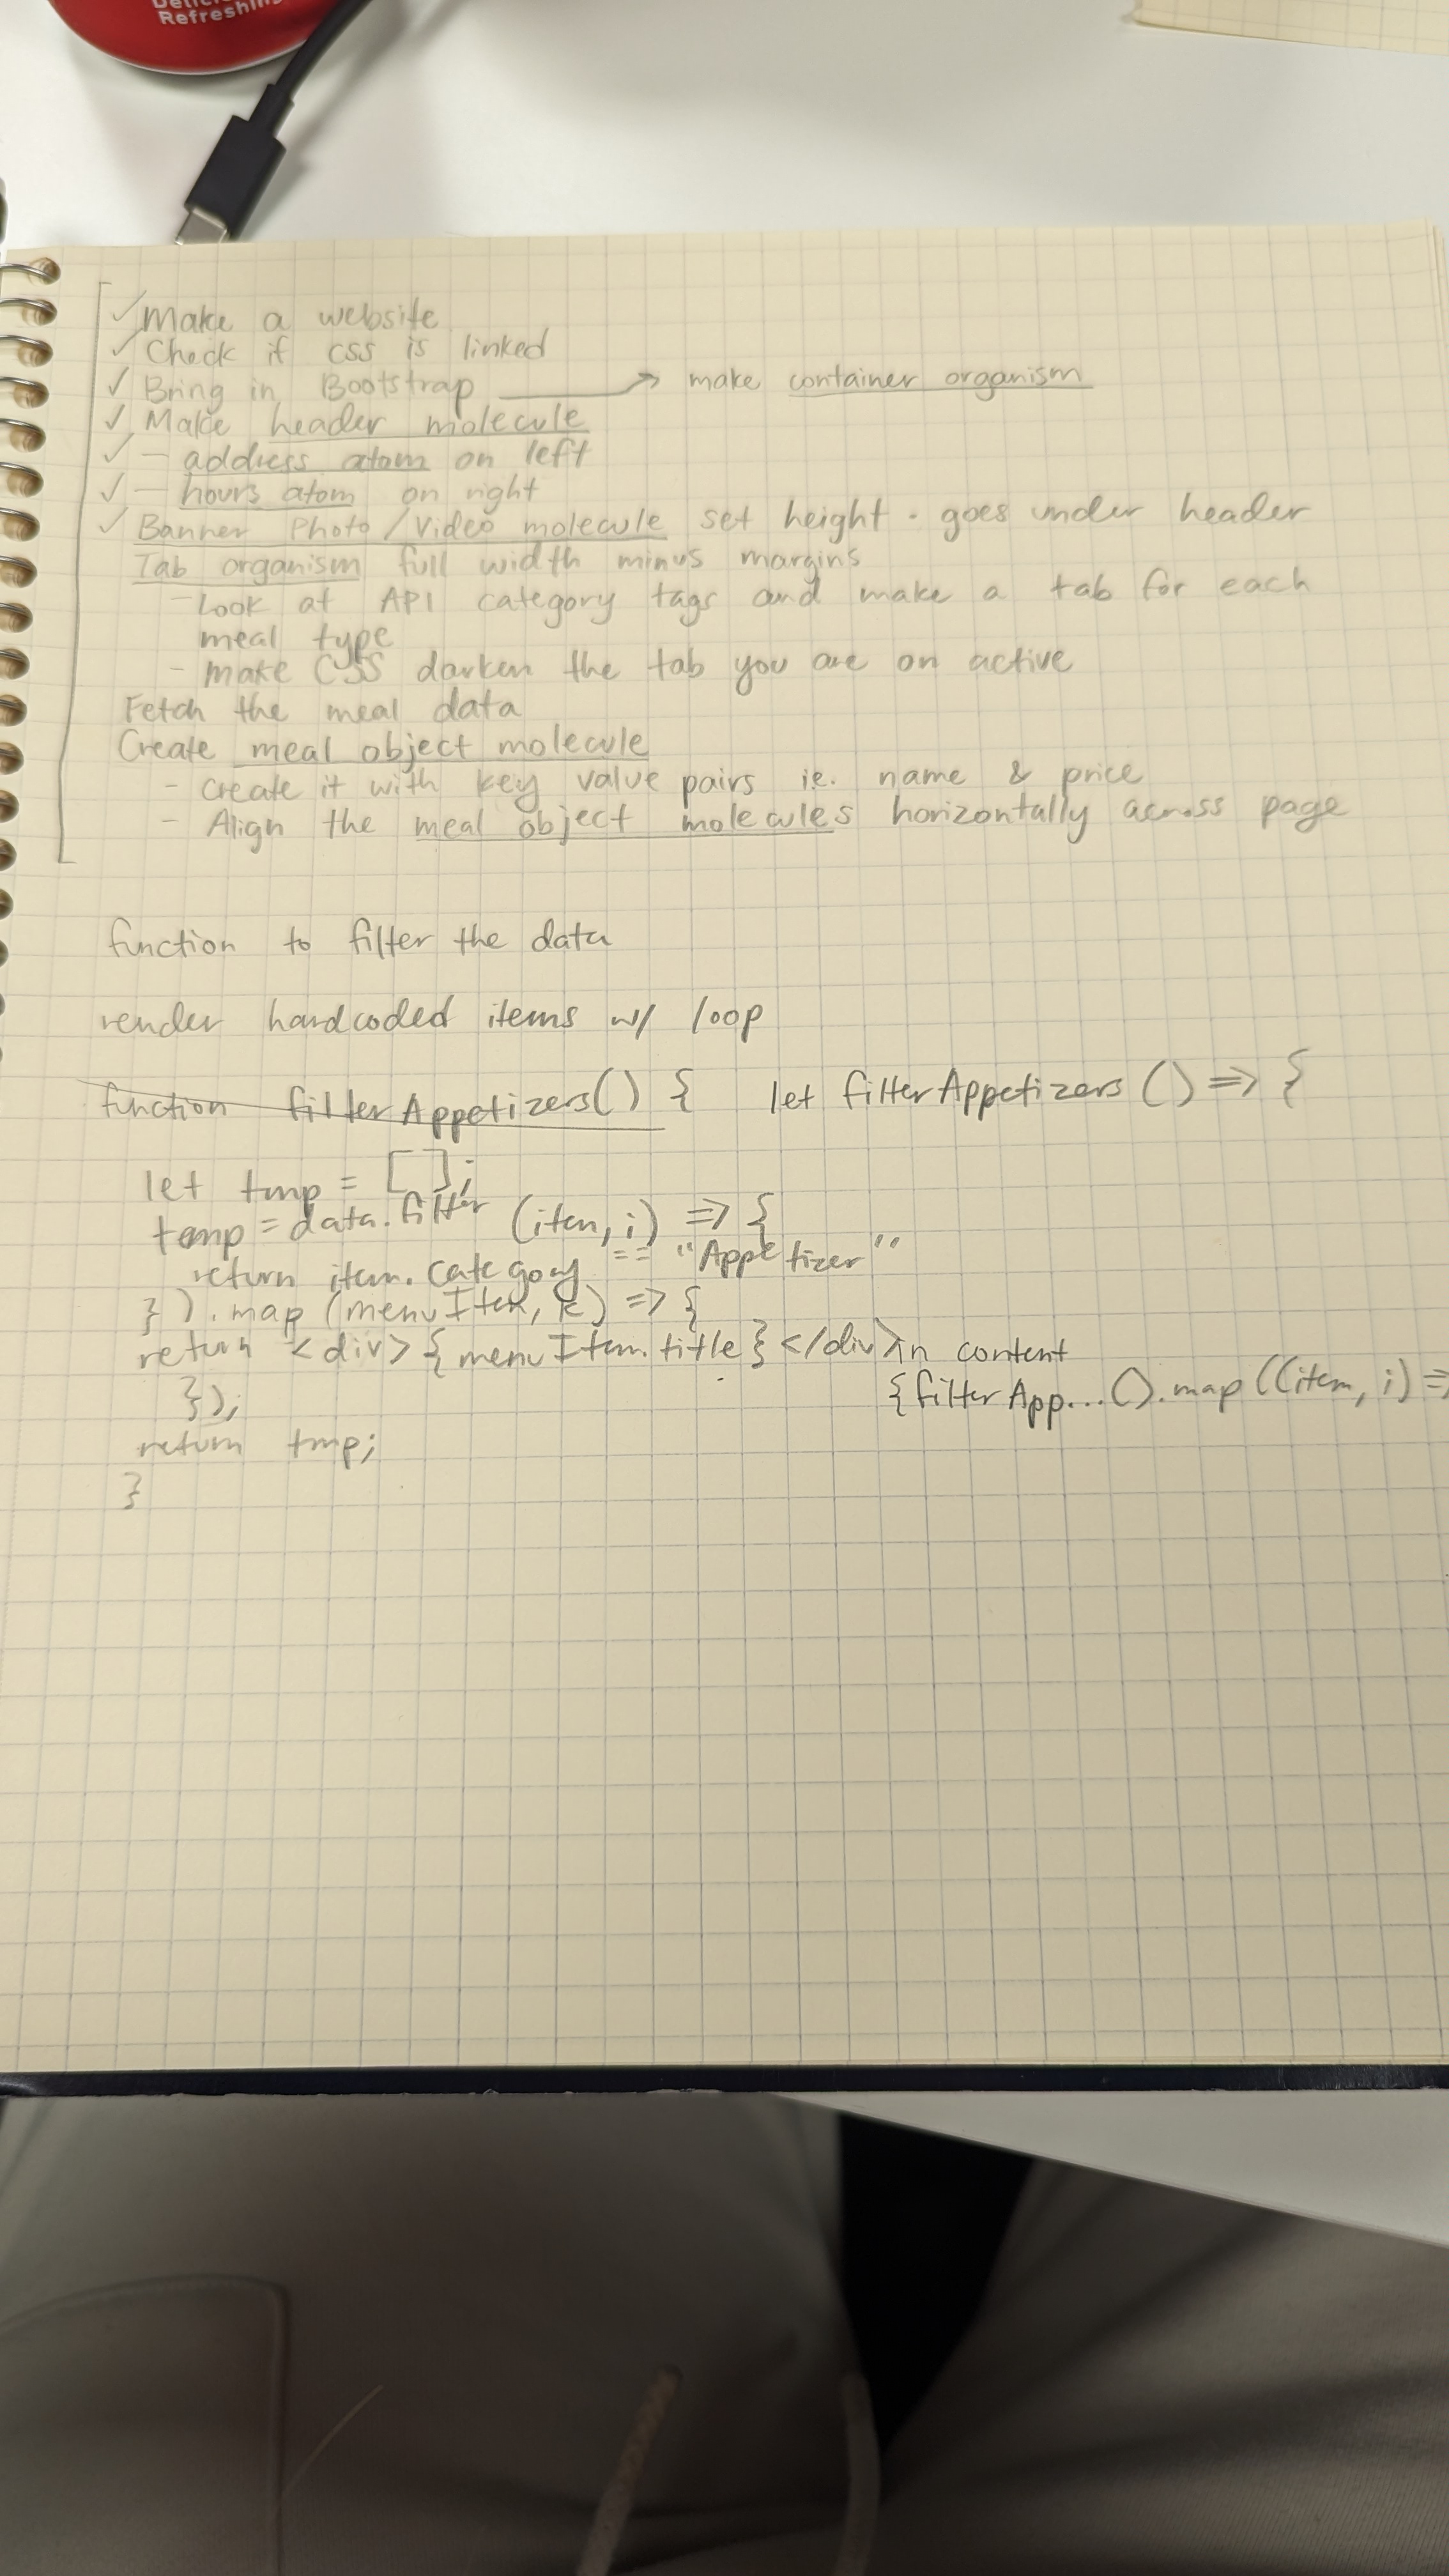 Refreshin
✓ Make a website
✓ Check if css is linked
✓ Bring in Bootstrap → make container organism
✓ Make header molecule
✓ - address atom on left
✓ - hours atom on right
✓ Banner Photo/Video molecule set height . goes under header
Tab organism full width minus margins
- Look at API category tags and make a tab for each
meal type
- make CSS darken the tab you are on active
Fetch the meal data
Create meal object molecule
- create it with key value pairs ie. name & price
- Align the meal object molecules horizontally across page
function to filter the data
render hardcoded items w/ loop
function filterAppetizers() { let filterAppetizers () => {
let tmp = [ ];
temp = data.filter (item, i) => {
return item.category == "Appetizer"
} ) .map (menuItem, k) => {
return <div>{menuItem.title}</div> in content
}); {filterApp...().map((item, i) =>
return tmp;
}